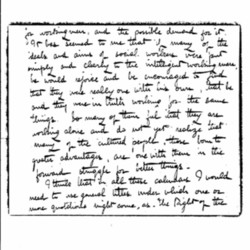 for workingmen, and the possible demand for it.
It has seemed to me that if many of the
ideals and aims of social workers were put
simply and clearly to the intelligent working man
he would rejoice and be encouraged to find
that they were really one with his own, that he
and they were in truth working for the same
things. So many of them feel that they are
working alone and do not yet realize that
many of the cultured people, those born to
greater advantages, are one with them in the
forward struggle for better things.
I think that on all these calendars I would
need to use general titles under which one or
more quotations might come, as: The Right of the